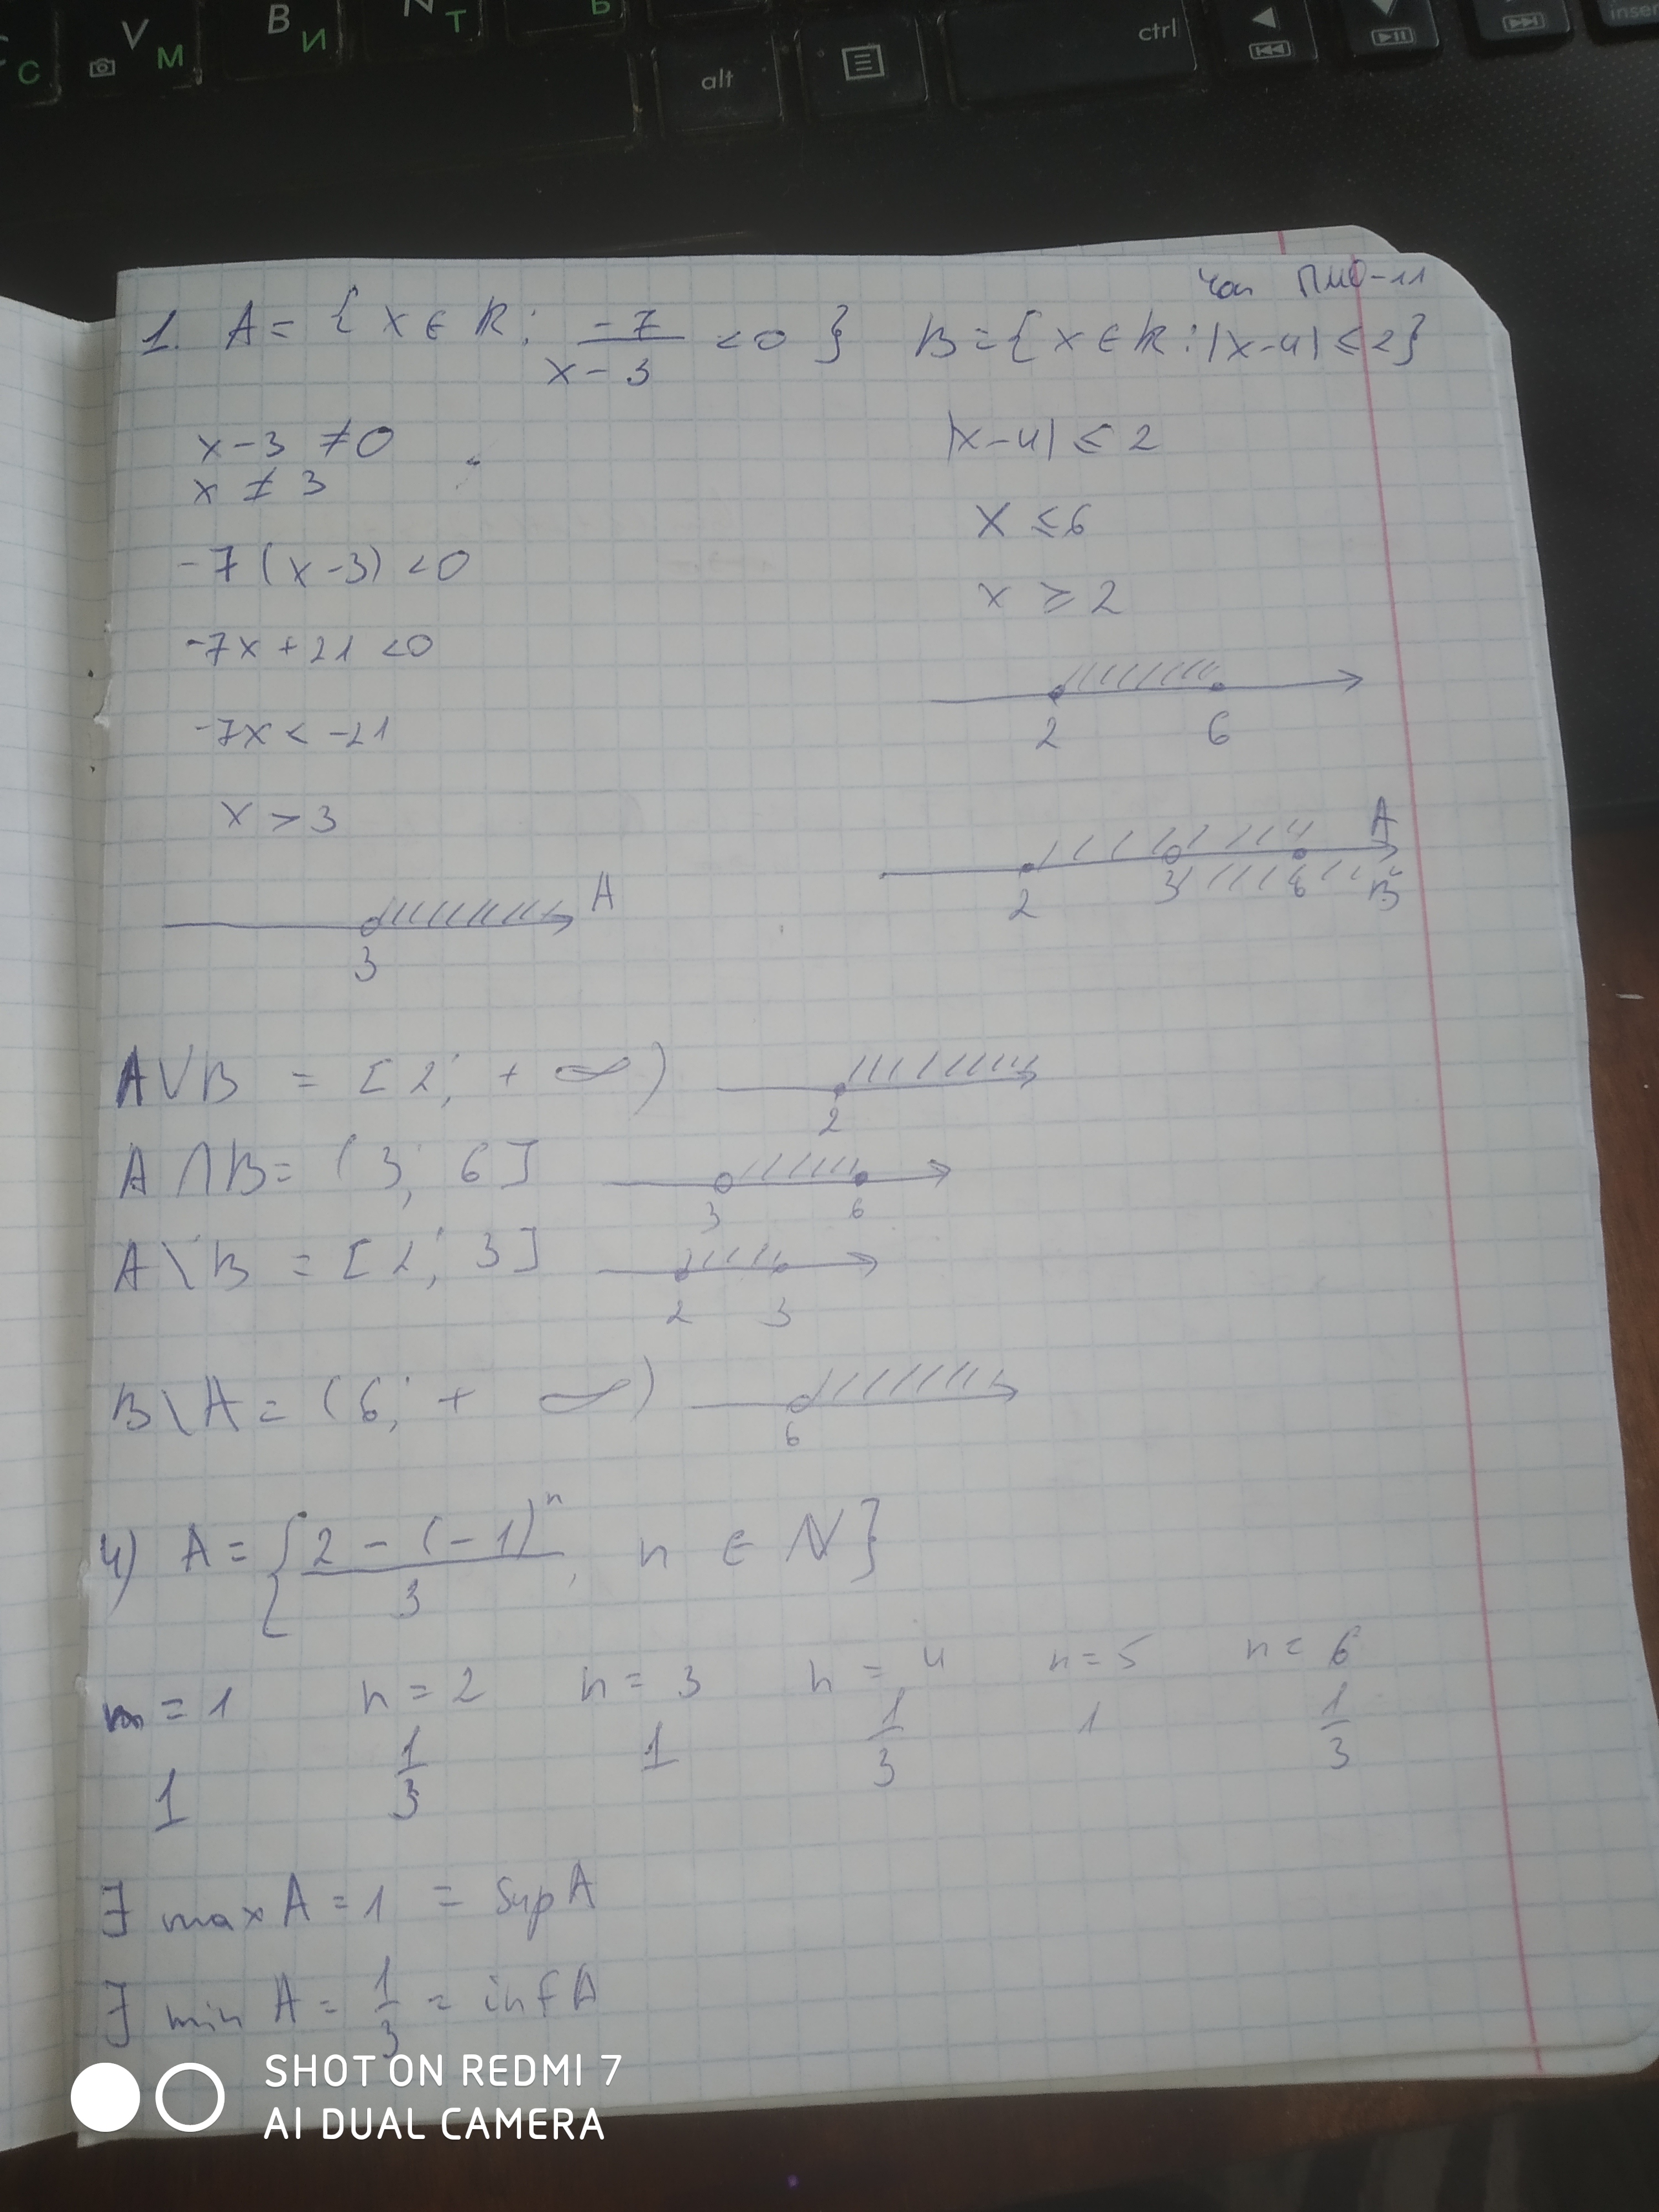 V М B И N Т Б С
alt ctrl inser
ПМО-11
1. A = { x ∈ R : -7/(x-3) < 0 } B = { x ∈ R : |x-4| ≤ 2 }
x - 3 ≠ 0
x ≠ 3
-7 (x-3) < 0
-7x + 21 < 0
-7x < -21
x > 3
3 A
|x-4| ≤ 2
x ≤ 6
x ≥ 2
2 6
2 3 6 A B
A ∪ B = [2; +∞) 2
A ∩ B = (3; 6] 3 6
A \ B = [2; 3] 2 3
B \ A = (6; +∞) 6
4) A = { (2 - (-1)^n)/3, n ∈ N }
n = 1 n = 2 n = 3 n = 4 n = 5 n = 6
1 1/3 1 1/3 1 1/3
∃ max A = 1 = sup A
∃ min A = 1/3 = inf A
SHOT ON REDMI 7
AI DUAL CAMERA